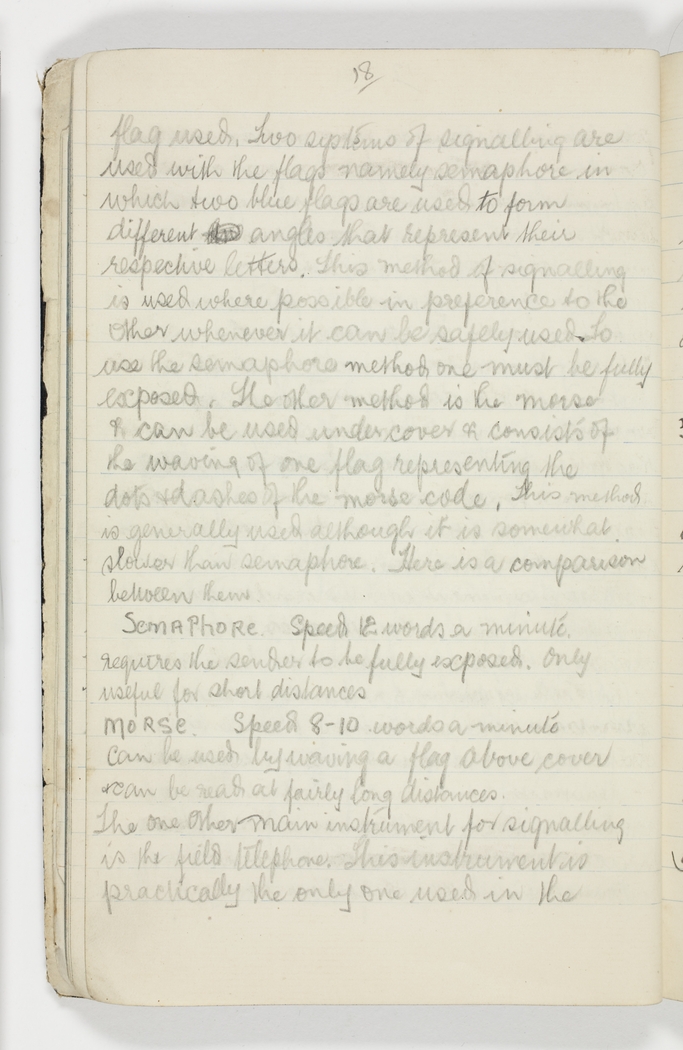 18
flag used. Two systems of signalling are
used with the flags namely semaphore in
which two blue flags are used to form
different angles that represent their
respective letters. This method of signalling
is used where possible in preference to the
other whenever it can be safely used. To
use the semaphore method one must be fully
exposed. The other method is the morse
& can be used under cover & consists of
the waving of one flag representing the
dots & dashes of the morse code. This method
is generally used although it is somewhat
slower than semaphore. Here is a comparison
between them.
SEMAPHORE. Speed 12 words a minute.
requires the sender to be fully exposed. Only
useful for short distances
MORSE. Speed 8-10 words a minute
can be used by waving a flag above cover
& can be read at fairly long distances.
The one other main instrument for signalling
is the field telephone. This instrument is
practically the only one used in the